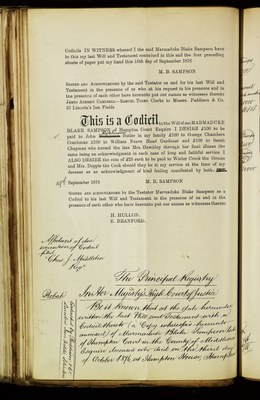 Codicils IN WITNESS whereof I the said Marmaduke Blake Sampson have
to this my last Will and Testament contained in this and the four preceding
sheets of paper put my hand this 16th day of September 1876
M. B. SAMPSON
SIGNED AND ACKNOWLEDGED by the said Testator as and for his last Will and
Testament in the presence of us who at his request in his presence and in
the presence of each other have hereunto put our names as witnesses thereto
JAMES ANDREW CAMPBELL—SAMUEL TUBBS Clerks to Messrs.
37 Lincoln's Inn Fields
This is a Codicil to the Will of me MARMADUKE
BLAKE SAMPSON of Hampton Court Esquire I DESIRE £100 to be
paid to John Butler in my family £100 to George Chambers
Coachman £100 to William Gardener and £100 to
Chapman who nursed the late Mrs. through her final illness the
same being an acknowledgment in each case of long and faithful service I
ALSO DESIRE the sum of £25 each to be paid to Walter Crook the Groom
and Mrs. the Cook should they be in my service at the time of my
decease as an acknowledgment of kind feeling manifested by both
September 1876 M. B. SAMPSON
SIGNED AND ACKNOWLEDGED by the Testator Marmaduke Blake Sampson as a
Codicil to his last Will and Testament in the presence of us and in the
presence of each other who have hereunto put our names as witnesses thereto
H.
E. BRANFORD.
Affidavit of due
execution of Codicil
filed
Chas J. Middleton
Regr
The Principal Registry
Probate In Her Majesty's High Court of Justice
Be it known that at the date hereunder
written the last Will and Testament with a
Codicil thereto (a Copy whereof is hereunto
annexed) of Marmaduke Blake Sampson late
of Hampton Court in the County of Middlesex
Esquire deceased who died on the day
of October 1876 at Hampton